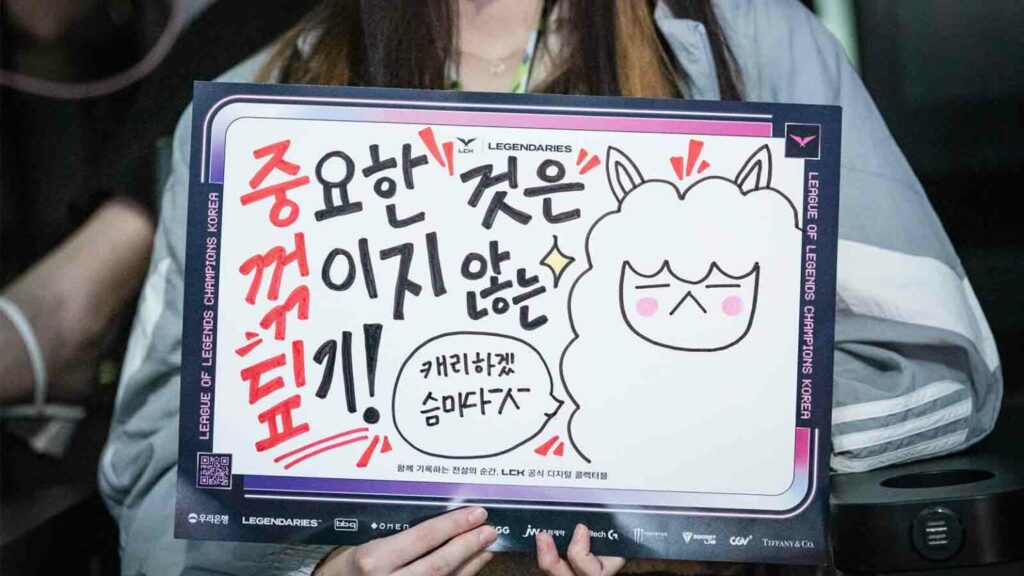 LCK LEGENDARIES
중요한 것은
꺾이지 않는
딮기!
캐리하겠
슴미다-ㅅ-
LEAGUE OF LEGENDS CHAMPIONS KOREA
LEAGUE OF LEGENDS CHAMPIONS KOREA
함께 기록하는 전설의 순간. LCK 공식 디지털 콜렉터블
우리은행 LEGENDARIES bbq OMEN GG JW MONSTER SECRETLAB CGV TIFFANY & CO.